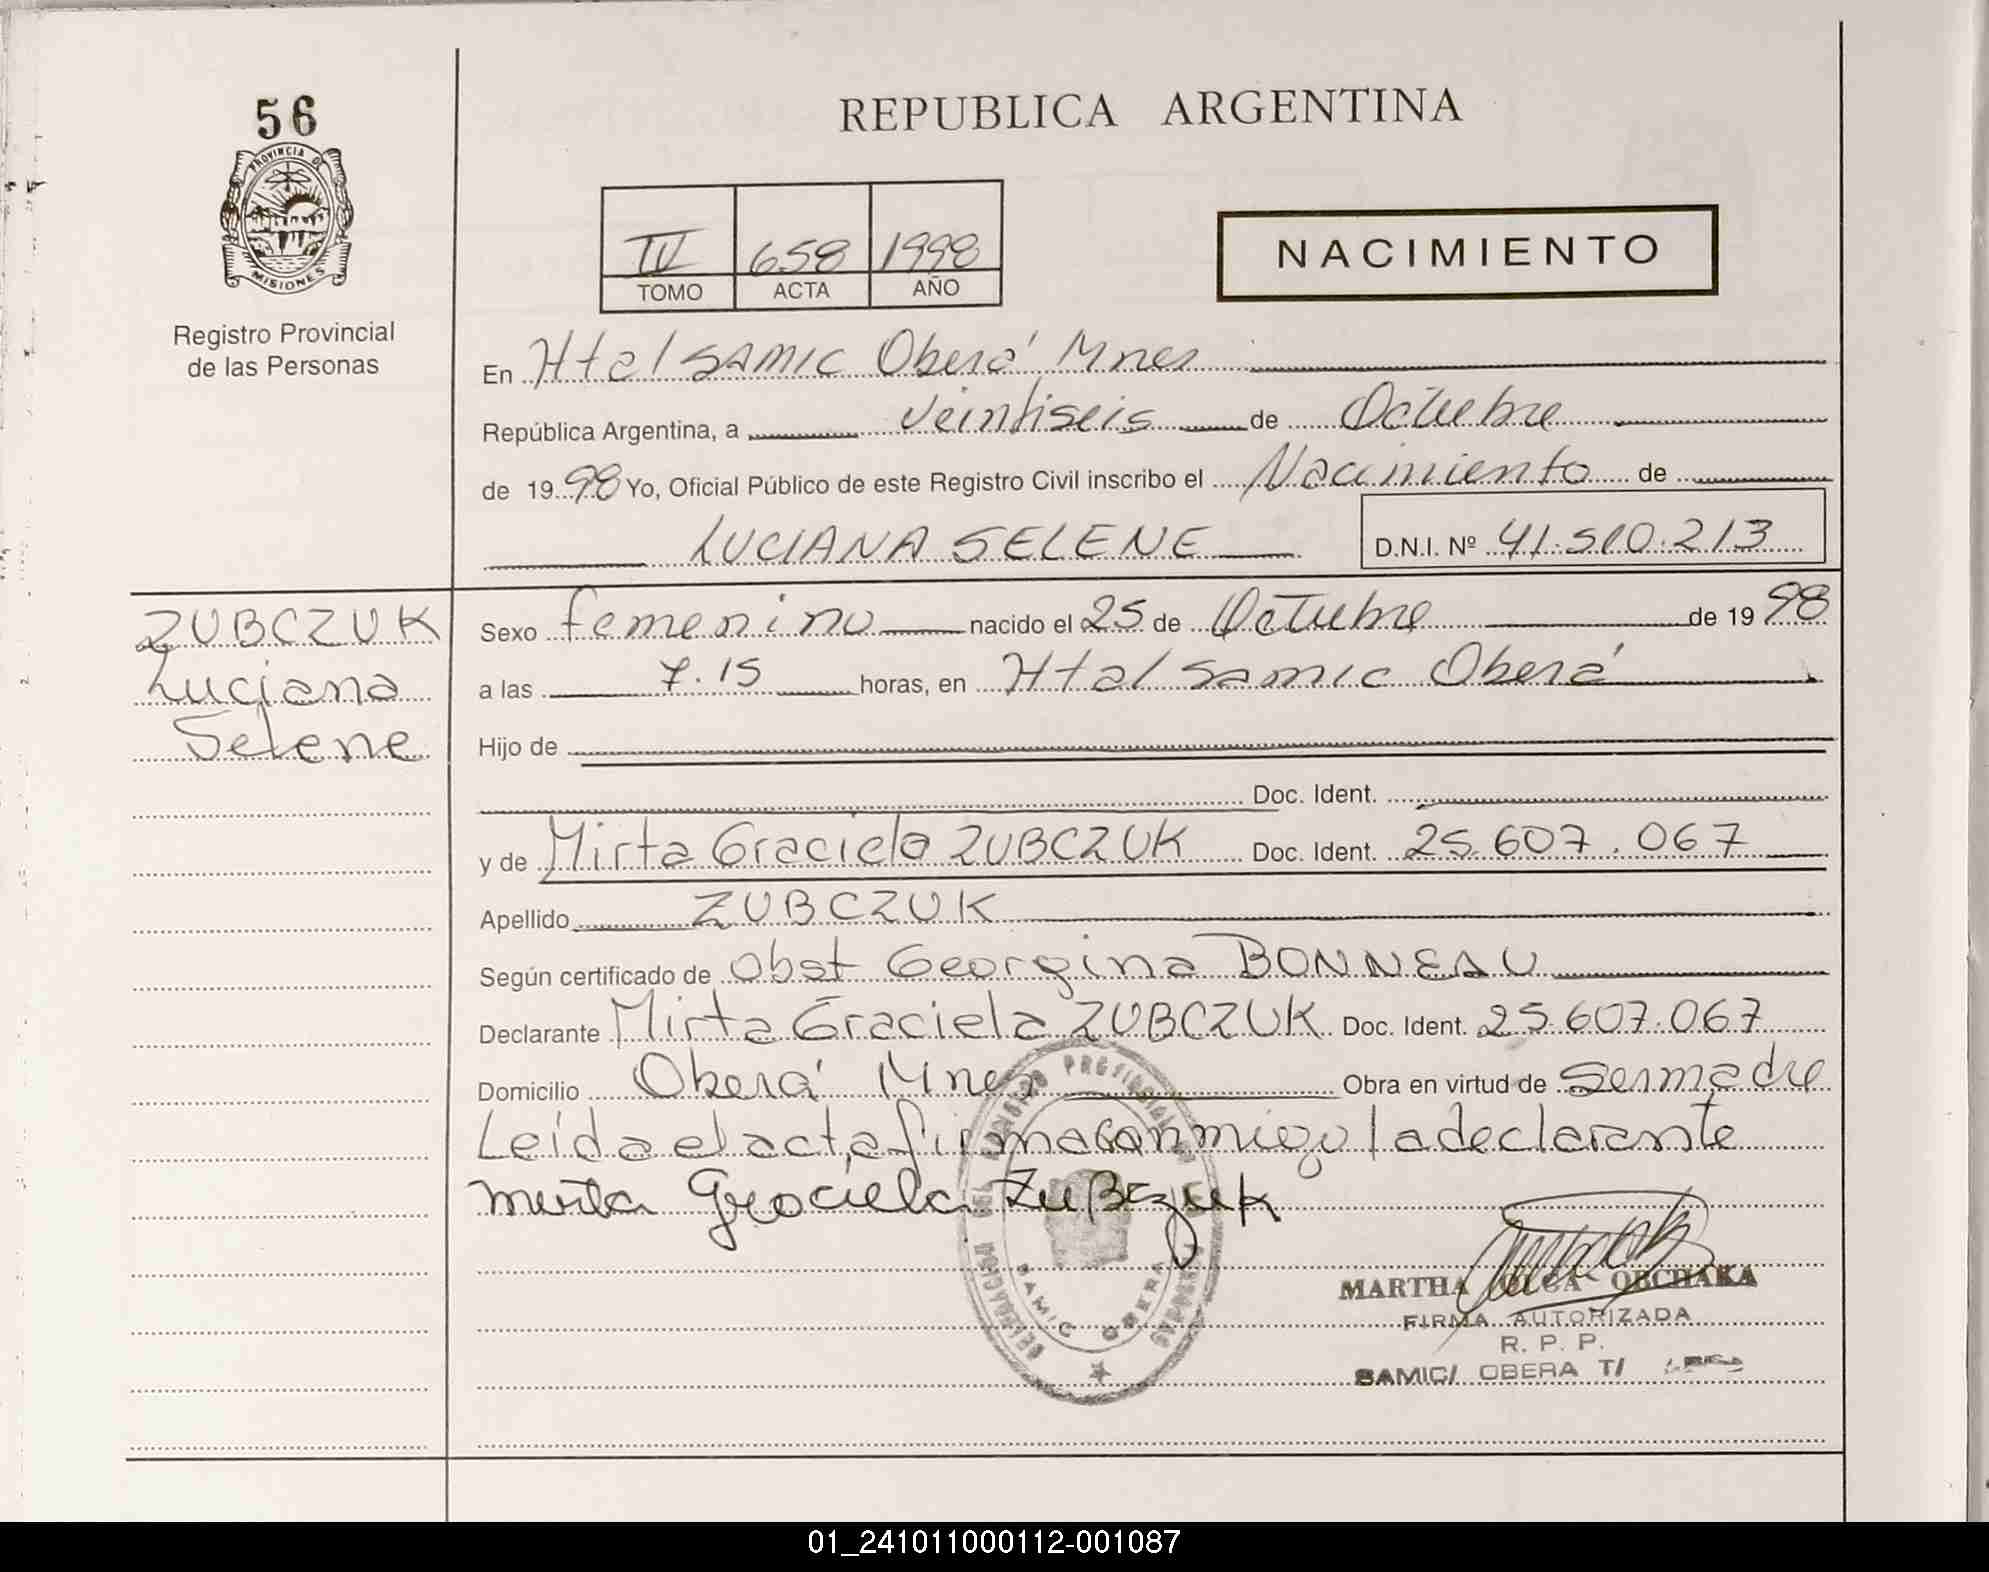 56
PROVINCIA DE
MISIONES
Registro Provincial
de las Personas
REPUBLICA ARGENTINA
IV 658 1998
TOMO ACTA AÑO
NACIMIENTO
En Htal SAMIC Oberá Mnes
República Argentina, a veintiseis de Octubre
de 1998 Yo, Oficial Público de este Registro Civil inscribo el Nacimiento de
LUCIANA SELENE D.N.I. Nº 41.510.213
ZUBCZUK
Luciana
Selene
Sexo femenino nacido el 25 de Octubre de 1998
a las 7.15 horas, en Htal Samic Oberá
Hijo de
Doc. Ident.
y de Mirta Graciela ZUBCZUK Doc. Ident. 25.607.067
Apellido ZUBCZUK
Según certificado de Obst Georgina BONNEAU
Declarante Mirta Graciela ZUBCZUK Doc. Ident. 25.607.067
Domicilio Oberá Mnes Obra en virtud de Ser madre
Leída el acta firma conmigo la declarante
Mirta Graciela Zubczuk
DELEGACION DEL REGISTRO PROVINCIAL DE LAS PERSONAS
SAMIC OBERA
MARTHA OLGA OBCHAKA
FIRMA AUTORIZADA
R. P. P.
SAMIC/ OBERA T/
01_241011000112-001087